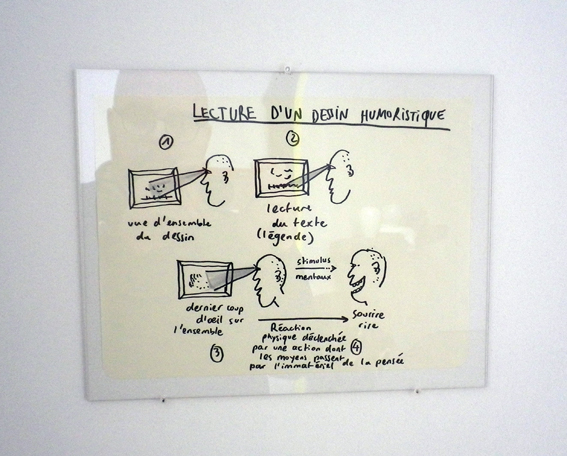 LECTURE D'UN DESSIN HUMORISTIQUE
1
vue d'ensemble
du dessin
2
lecture
du texte
(légende)
dernier coup
d'œil sur
l'ensemble
3
stimulus
mentaux
sourire
rire
Réaction
physique déclenchée
par une action dont
les moyens passent
par l'immatériel de la pensée
4